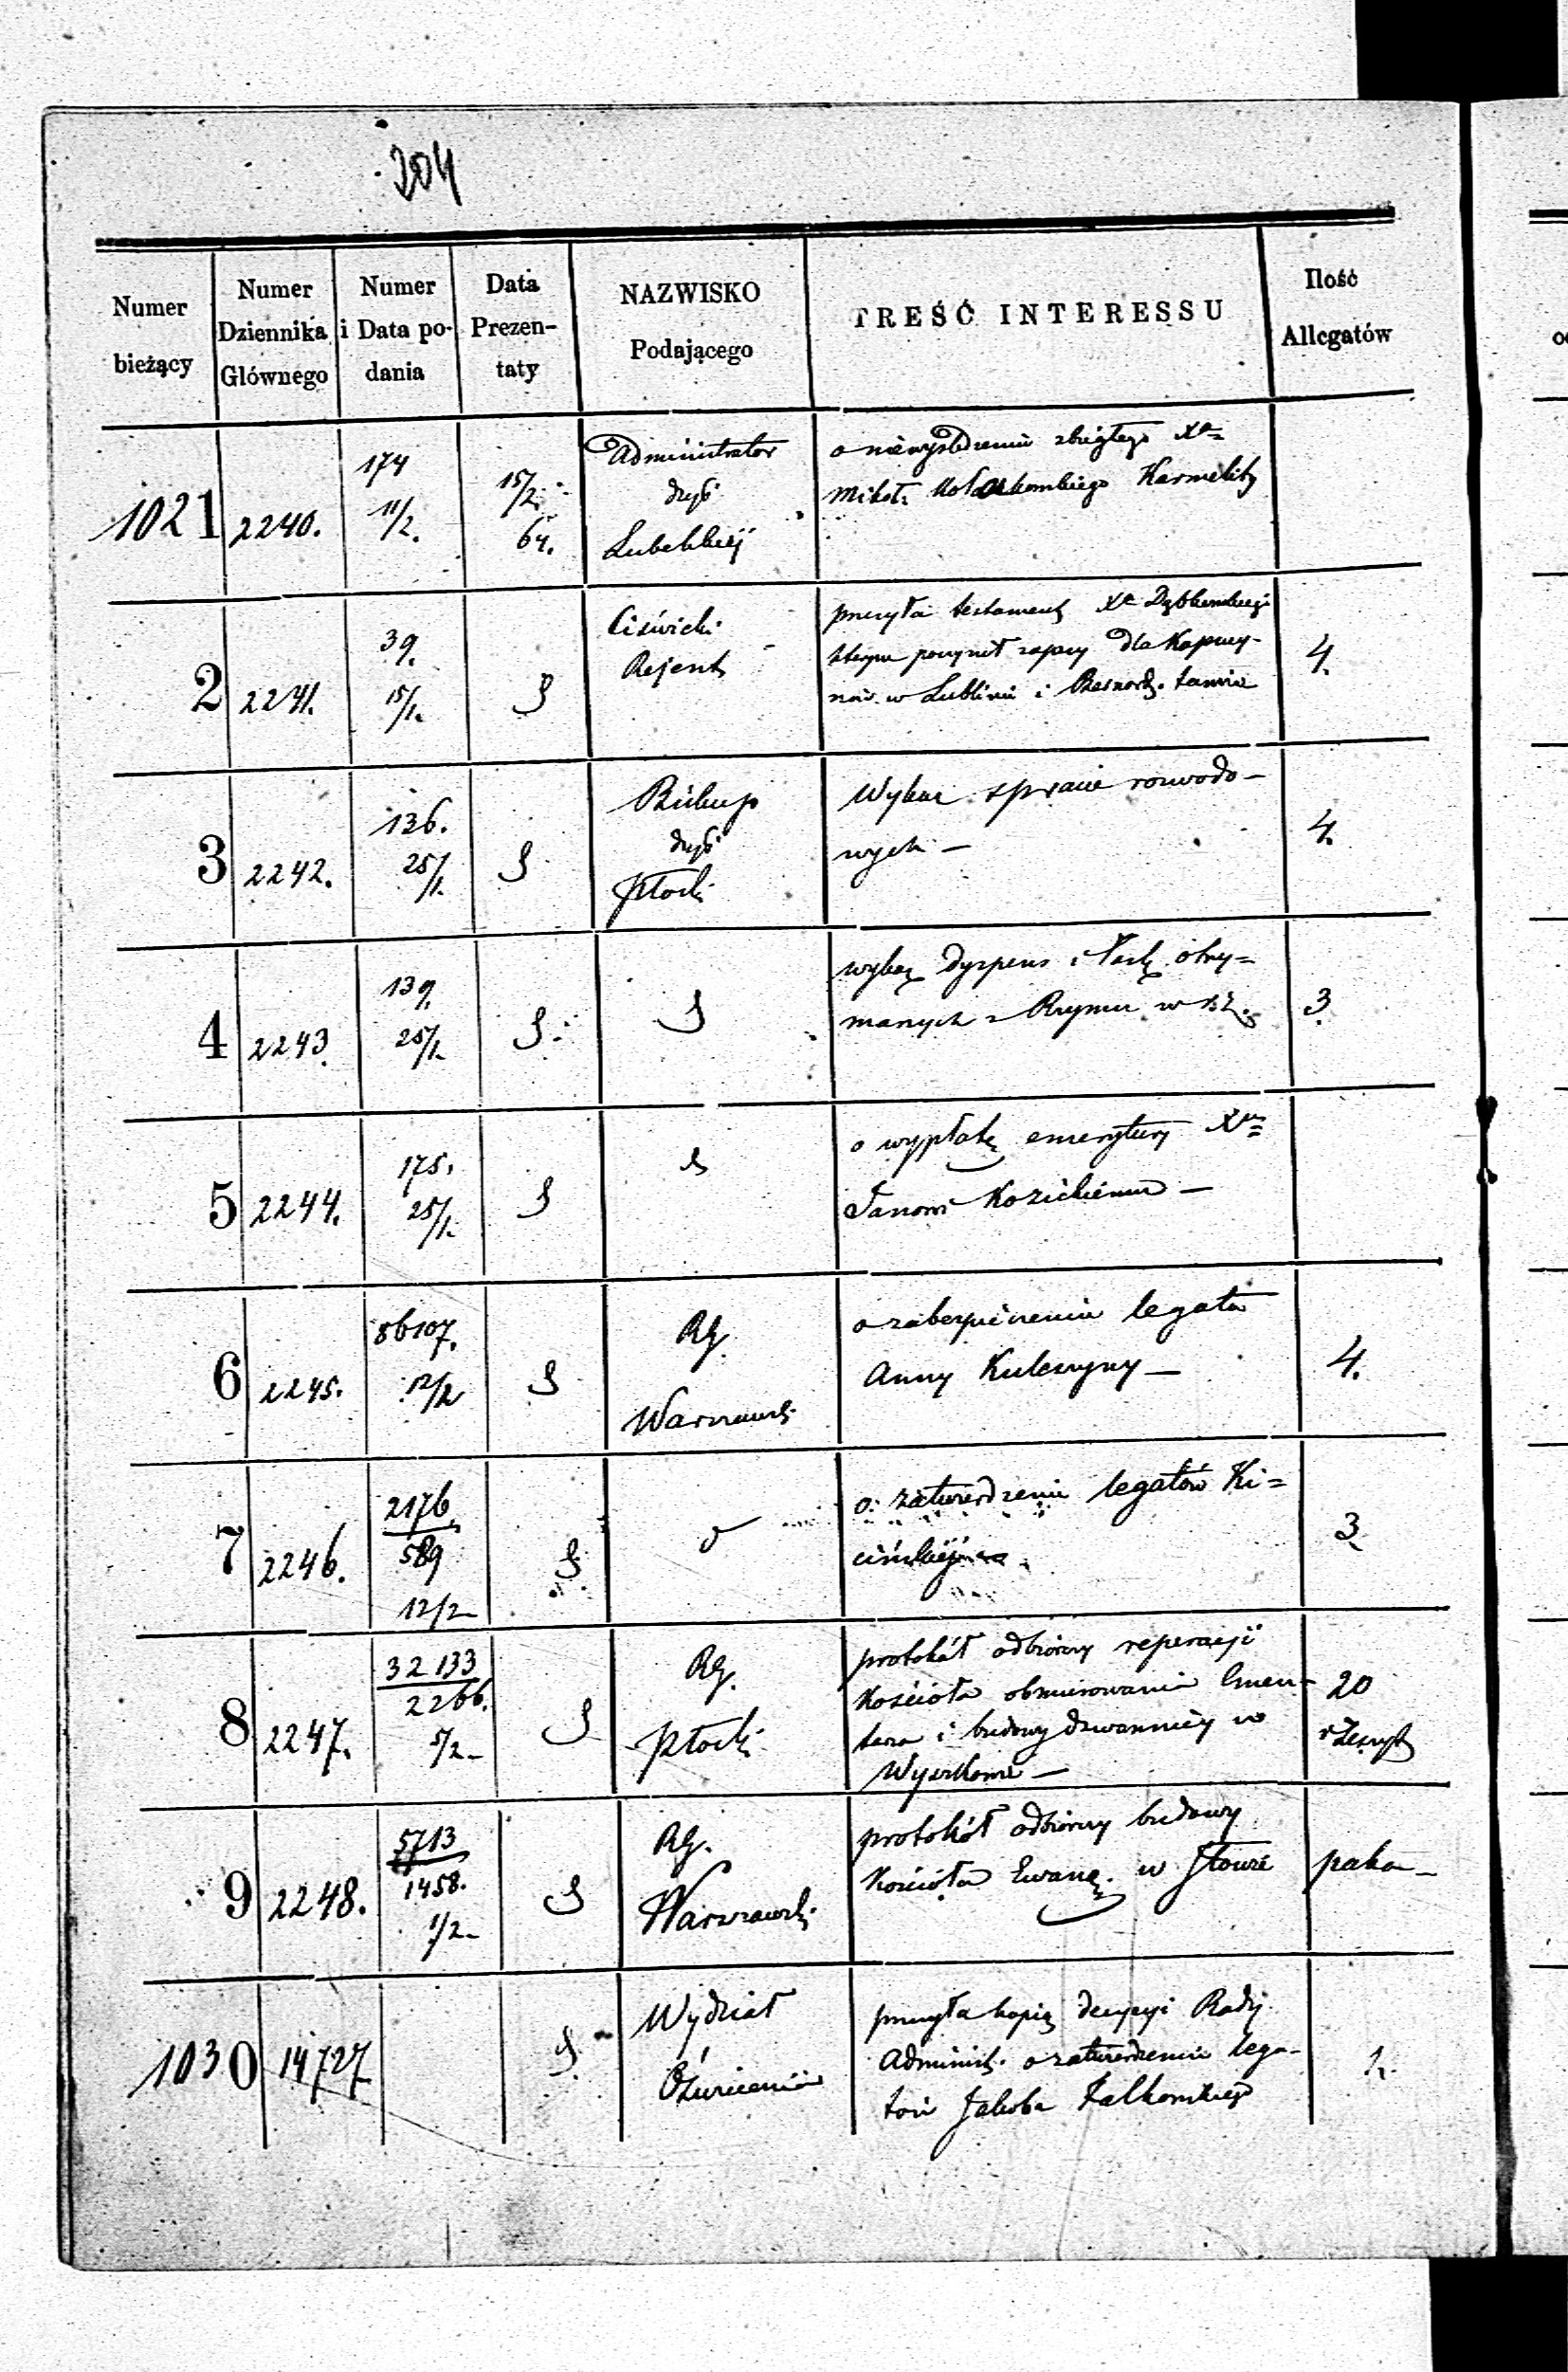 204
Numer bieżący
Numer Dziennika Głównego
Numer i Data podania
Data Prezentaty
NAZWISKO Podającego
TREŚĆ INTERESSU
Ilość Allegatów
1021
2240.
174
11/2.
15/2.
64.
Administrator
dyec
Lubelskiej
o niewyśledzeniu zbiegłego Xa
Mikoł. Karmelity
2
2241.
39.
15/1.
Ciświcki
Rejent
przesyła testament Xa
którym poczynił zapisy dla Kapucy-
nów w Lublinie i Bernard. tamże
4.
3
2242.
136.
25/1.
Biskup
dyec
Płocki
Wykaz spraw rozwodo-
wych –
4.
4
2243.
139.
25/1.
wykaz dyspens i łask otrzy=
manych z Rzymu w
3
5
2244.
175.
25/1.
o wypłatę emerytury Xu
Janowi Kozickiemu –
6
2245.
86107.
12/2
RG.
Warszawski
o zabezpieczeniu legatu
Anny Kuleszyny –
4.
7
2246.
2176
589
12/2
o zatwierdzenie legatów Ki=
cińskiej
3
8
2247.
32133
2266.
5/2
RG.
Płocki
protokół odbiorczy reperacji
Kościoła obmurowania Cmen-
tarza i budowy dzwonnicy w
Wyszkowie –
20
9
2248.
5713
1458.
1/2
RG.
Warszawski
protokół odbiorczy budowy
Kościoła Ewang. w Iłowie
paka –
1030
14727
Wydział
Oświecenia
przesyła kopię decyzyi Rady
Administ. o zatwierdzeniu lega-
tów Jakóba Falkowskiego